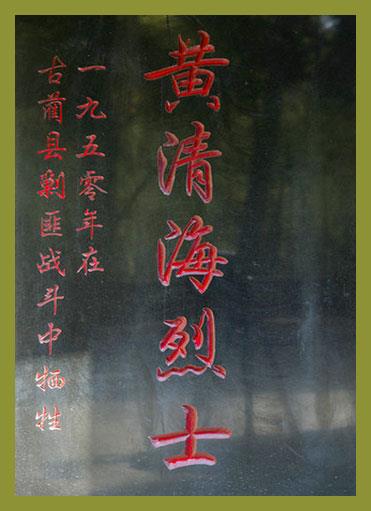 黄清海烈士
一九五零年在
古蔺县剿匪战斗中牺牲